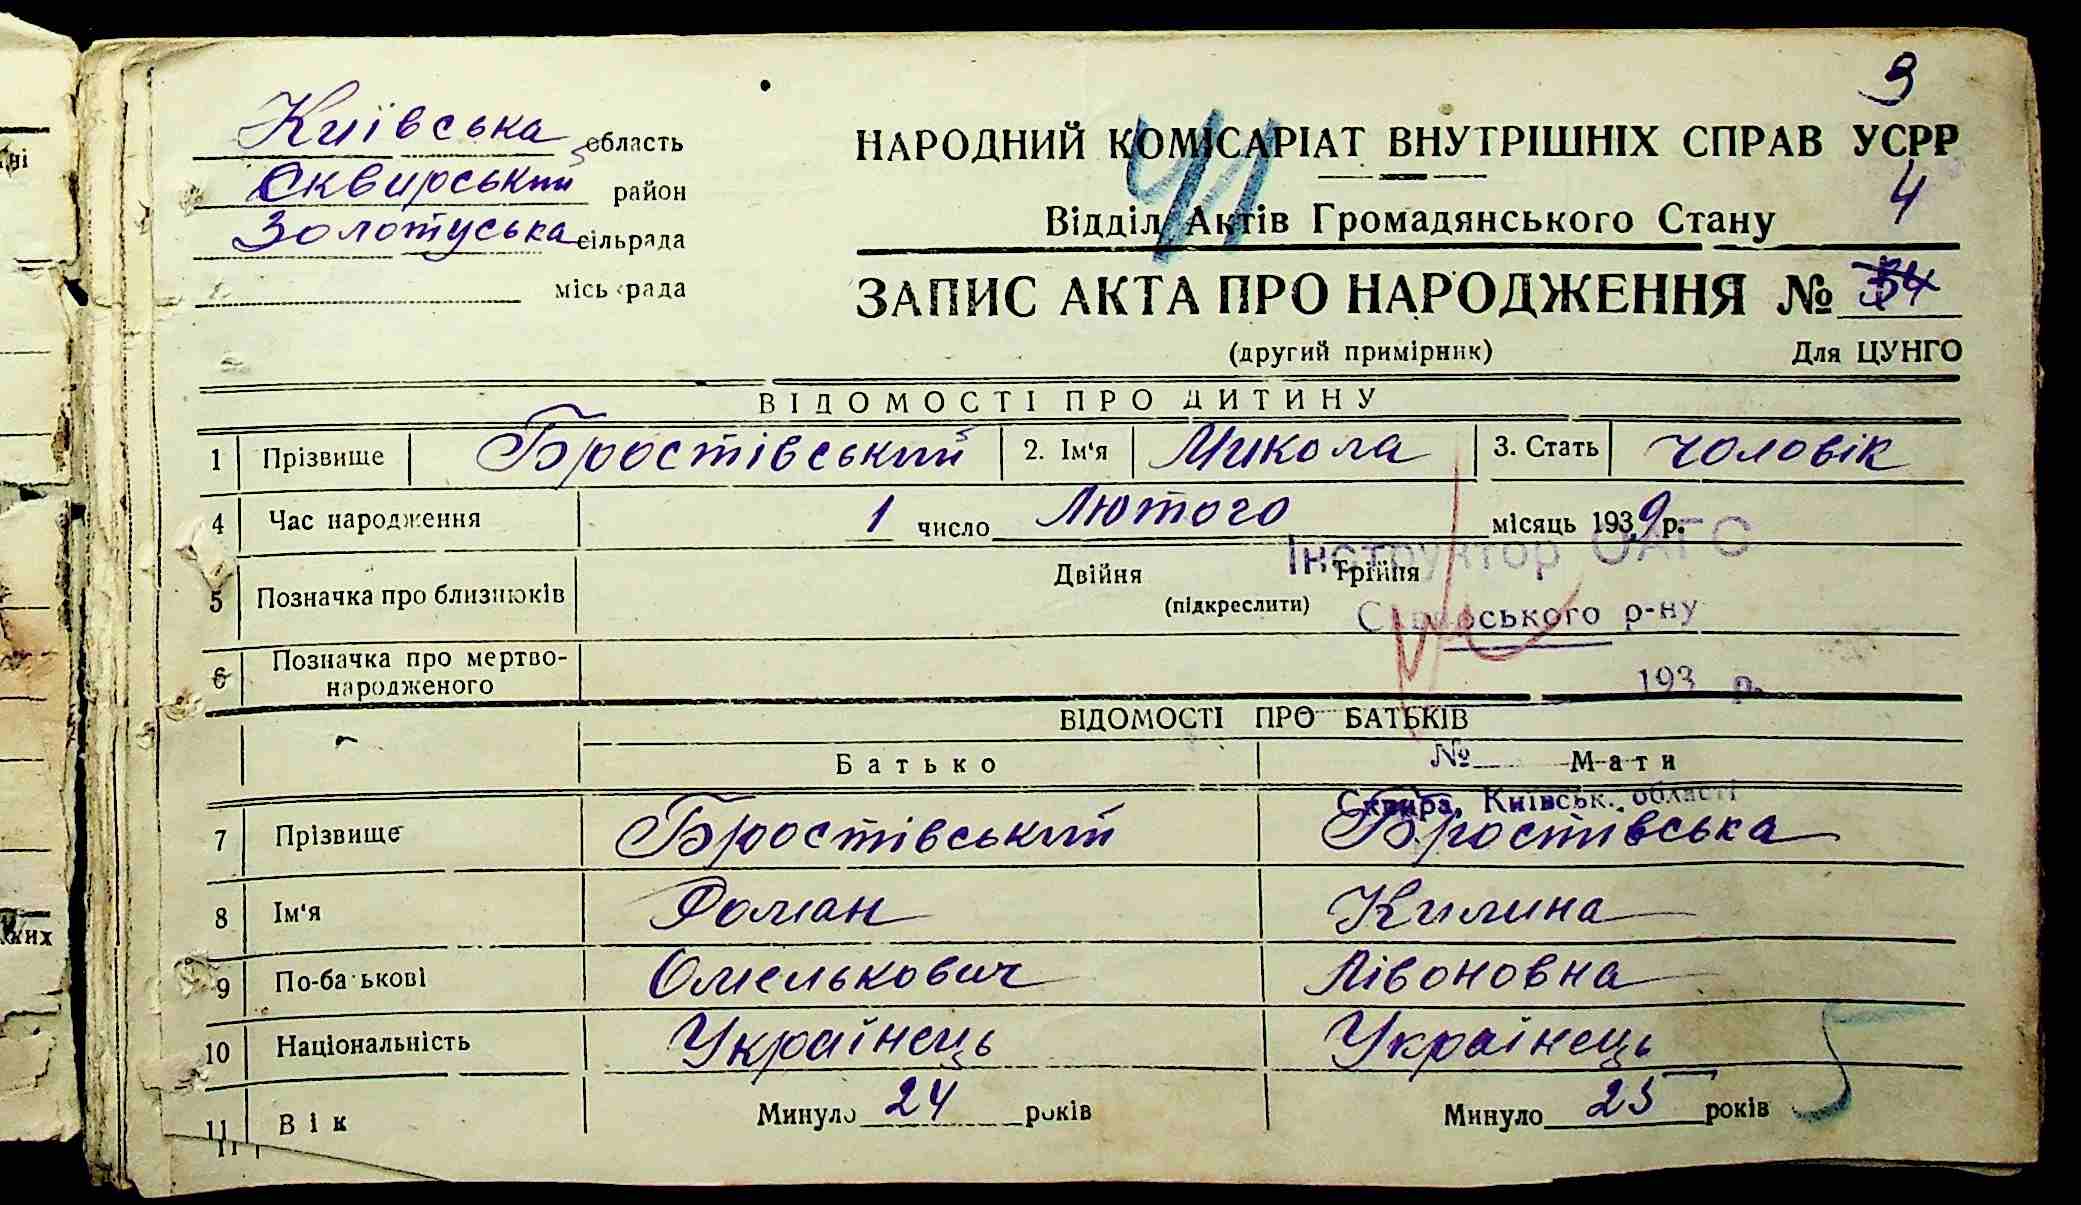 9
Київська область
Сквирський район
Золотуська сільрада
місь рада
НАРОДНИЙ КОМІСАРІАТ ВНУТРІШНІХ СПРАВ УСРР
4
Відділ Актів Громадянського Стану
ЗАПИС АКТА ПРО НАРОДЖЕННЯ №
(другий примірник) Для ЦУНГО
ВІДОМОСТІ ПРО ДИТИНУ
1 Прізвище Бростівський 2. Ім'я Микола 3. Стать чоловік
4 Час народження 1 число Лютого місяць 1939 р.
Інструктор ОАГС
5 Позначка про близнюків Двійня Трійня
(підкреслити)
Сквирського р-ну
6 Позначка про мертво-
народженого
193 р.
ВІДОМОСТІ ПРО БАТЬКІВ
Батько Мати
№
Сквира, Київськ. області
7 Прізвище Бростівський Бростівська
8 Ім'я Роман Килина
9 По-батькові Омелькович Лівоновна
10 Національність Українець Українець
11 Вік Минуло 24 років Минуло 23 років